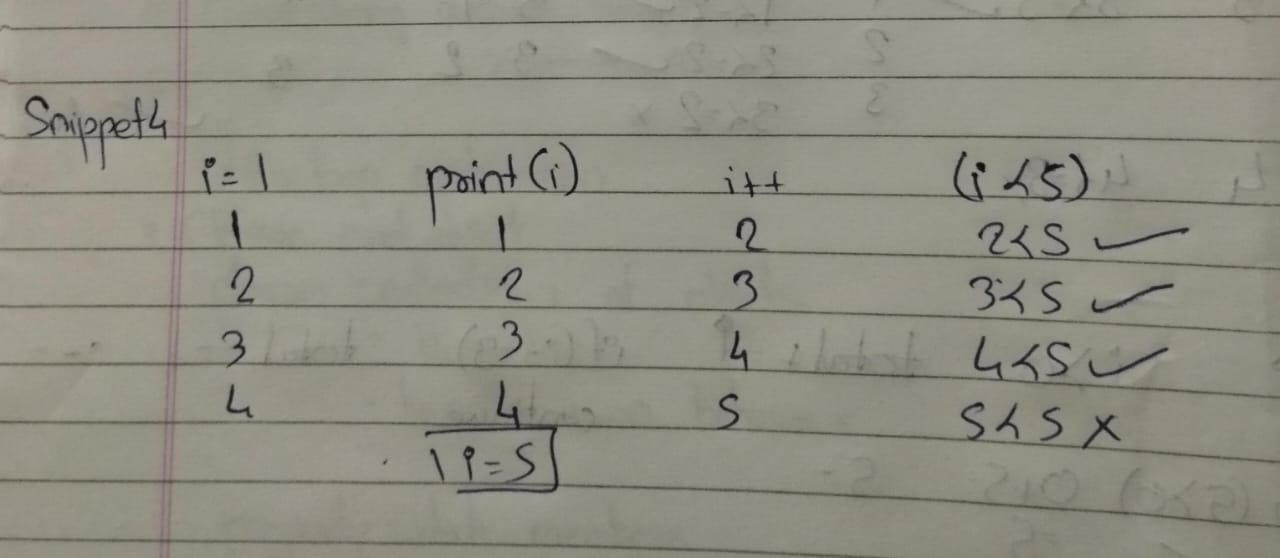 Snippet 4
i = 1 print(i) i++ (i<5)
1 1 2 2<5 ✓
2 2 3 3<5 ✓
3 3 4 4<5 ✓
4 4 5 5<5 ×
i=5